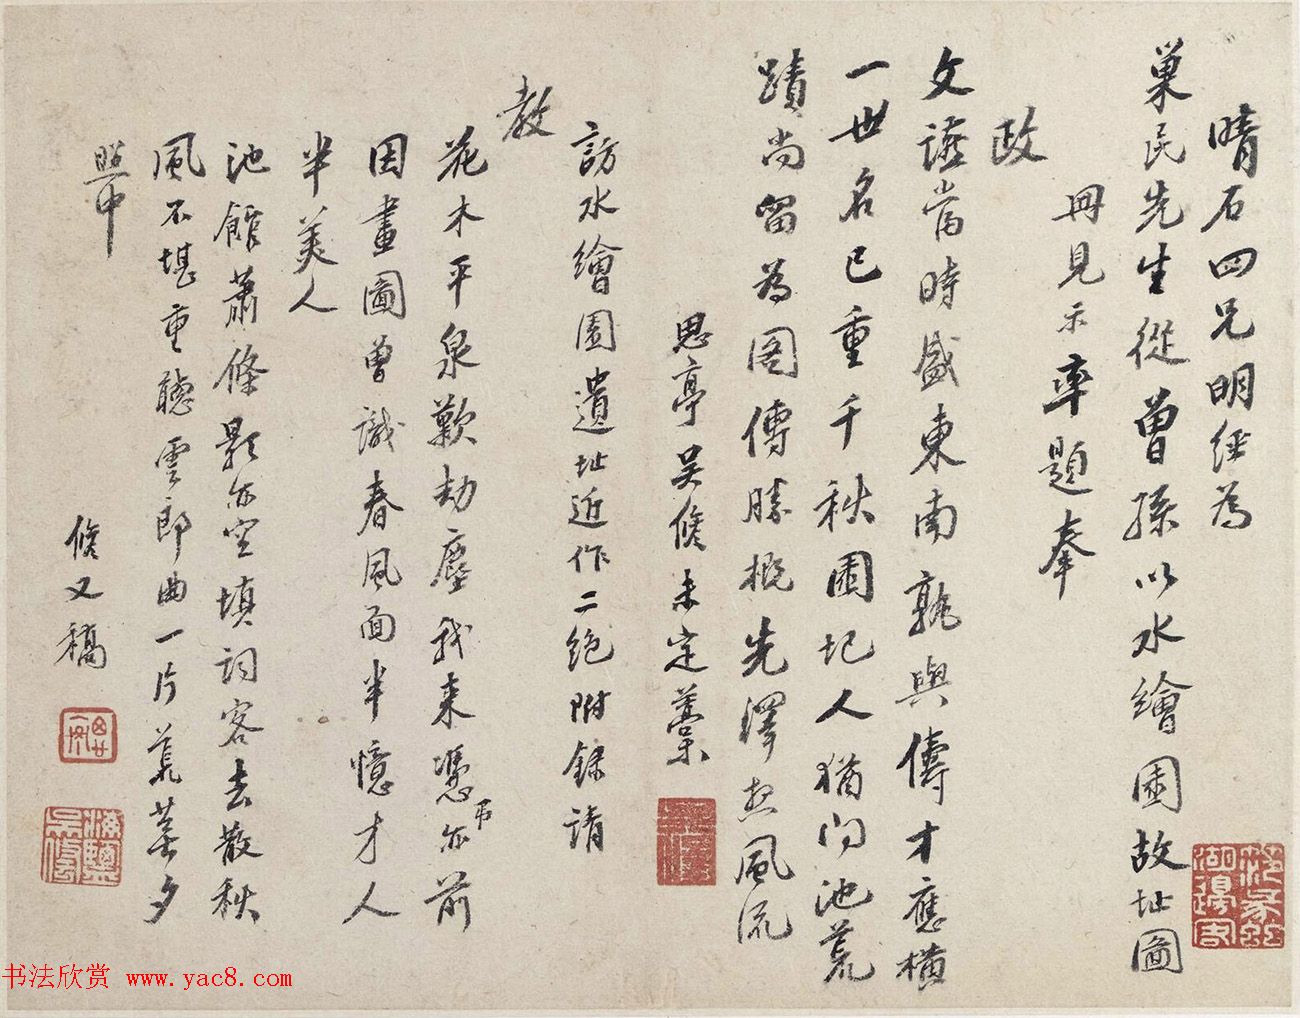 晴石四兄明经為
巢民先生從曾孫以水繪圃故址圖
冊見示率題奉
政
文讌當時盛東南孰與儔才應橫
一世名已重千秋圃圮人猶问池荒
蹟尚留為图傳勝概先澤想風流
思亭吴脩未定藁
訪水繪園遺址近作二绝附錄請
教
花木平泉歎劫塵我来憑弔亦前
因畫圖曾識春風面半憶才人
半美人
池館蕭條影亦空填词客去散秋
風不堪重聽雲郎曲一片荒蕪夕
照中
脩又稿
书法欣赏 www.yac8.com